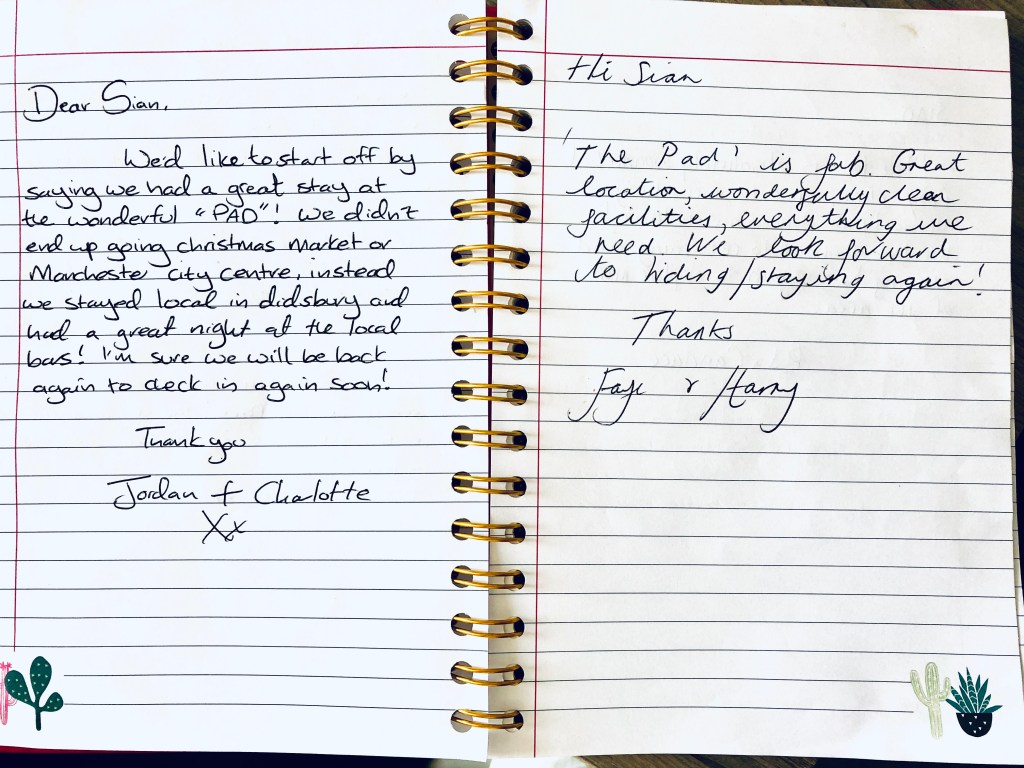 Dear Sian,
We'd like to start off by
saying we had a great stay at
the wonderful "PAD"! We didn't
end up going christmas market or
Manchester city centre, instead
we stayed local in didsbury and
had a great night at the local
bars! I'm sure we will be back
again to check in again soon!
Thank you
Jordan + Charlotte
Xx
Hi Sian
'The Pad' is fab. Great
location, wonderfully clean
facilities, everything we
need. We look forward
to hiding/staying again!
Thanks
Faye & Harry